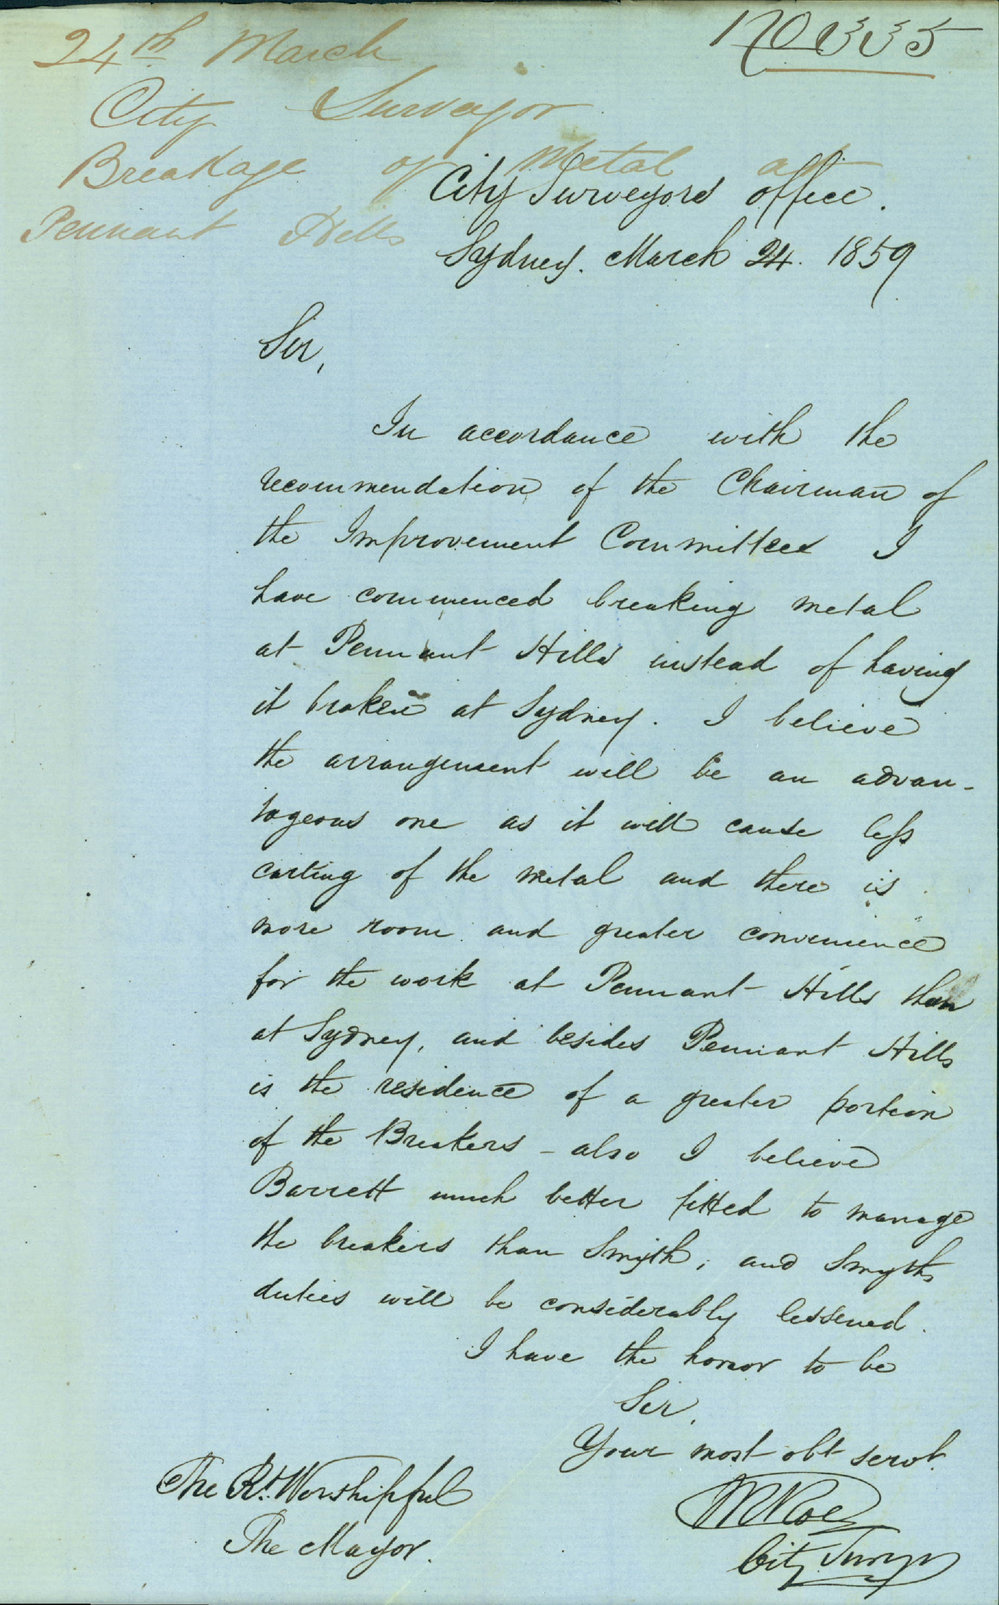 24th March
City Surveyor
Breakage of Metal at
Pennant Hills
No 335
City Surveyors office.
Sydney. March 24. 1859
Sir,
In accordance with the
recommendation of the Chairman of
the Improvement Committee I
have commenced breaking metal
at Pennant Hills instead of having
it broken at Sydney. I believe
the arrangement will be an advan-
tageous one as it will cause less
carting of the metal and there is
more room and greater convenience
for the work at Pennant Hills than
at Sydney, and besides Pennant Hills
is the residence of a greater portion
of the Breakers - also I believe
Barrett much better fitted to manage
the breakers than Smyth, and Smyths
duties will be considerably lessened.
I have the honor to be
Sir,
Your most obt servt.
City Survyr
The Rt. Worshipful
The Mayor.